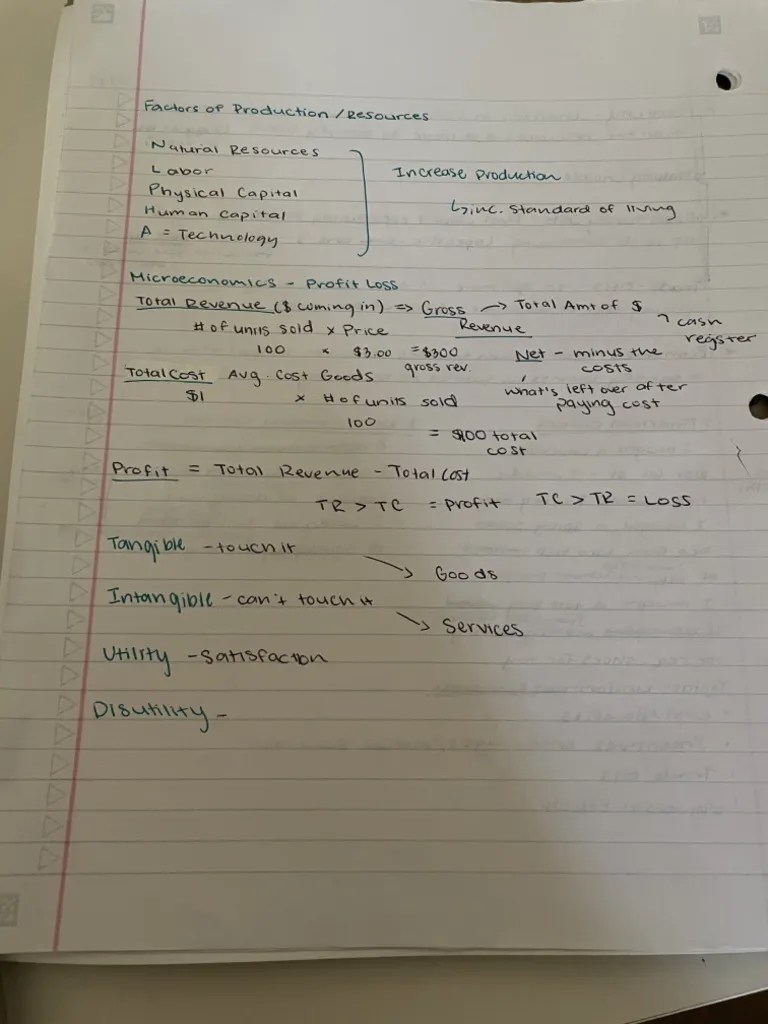 Factors of Production / Resources
Natural Resources
Labor
Physical Capital
Human Capital
A = Technology
Increase Production
↳ inc. standard of living
Microeconomics - Profit Loss
Total Revenue ($ coming in) => Gross Revenue → Total Amt of $ → cash register
# of units sold x Price
100 x $3.00 = $300 gross rev.
Net - minus the costs
what's left over after paying cost
Total Cost Avg. Cost Goods x # of units sold
$1 100
= $100 total cost
Profit = Total Revenue - Total Cost
TR > TC = Profit TC > TR = Loss
Tangible - touch it
→ Goods
Intangible - can't touch it
→ Services
Utility - Satisfaction
Disutility -